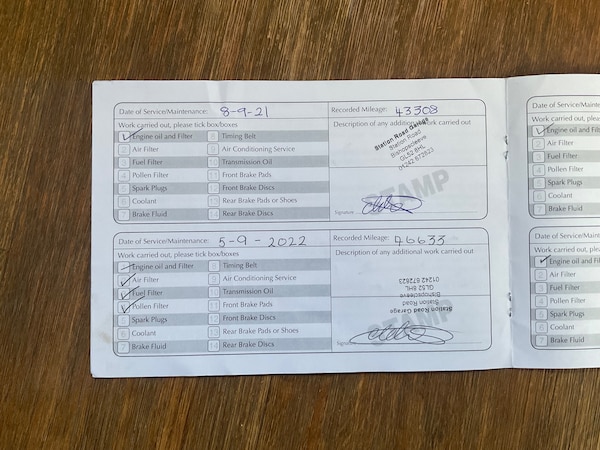 Date of Service/Maintenance: 8-9-21 Recorded Mileage: 43308
Work carried out, please tick box/boxes Description of any additional work carried out
Engine oil and Filter 8 Timing Belt
2 Air Filter 9 Air Conditioning Service
3 Fuel Filter 10 Transmission Oil
4 Pollen Filter 11 Front Brake Pads
5 Spark Plugs 12 Front Brake Discs
6 Coolant 13 Rear Brake Pads or Shoes
7 Brake Fluid 14 Rear Brake Discs
Station Road Garage
Station Road
Bishopscleeve
GL52 8HL
01242 672823
STAMP
Signature
Date of Service/Maintenance: 5-9-2022 Recorded Mileage: 46633
Work carried out, please tick box/boxes Description of any additional work carried out
Engine oil and Filter 8 Timing Belt
Air Filter 9 Air Conditioning Service
Fuel Filter 10 Transmission Oil
Pollen Filter 11 Front Brake Pads
5 Spark Plugs 12 Front Brake Discs
6 Coolant 13 Rear Brake Pads or Shoes
7 Brake Fluid 14 Rear Brake Discs
Station Road Garage
Station Road
Bishopscleeve
GL52 8HL
01242 672823
STAMP
Signature
Date of Service/Maintenance
Work carried out, please
Engine oil and Filter
2 Air Filter
3 Fuel Filter
4 Pollen Filter
5 Spark Plugs
6 Coolant
7 Brake Fluid
Date of Service/Maintenance
Work carried out, please
Engine oil and Filter
2 Air Filter
3 Fuel Filter
4 Pollen Filter
5 Spark Plugs
6 Coolant
7 Brake Fluid